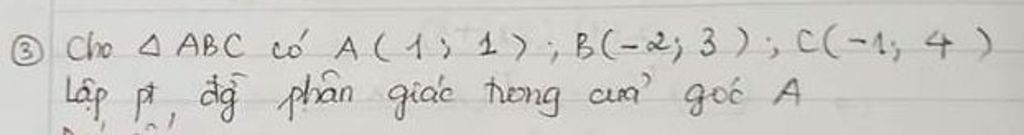 ③ Cho △ ABC có A(1; 1); B(-2; 3); C(-1; 4)
Lập pt, đg phân giác trong của góc A